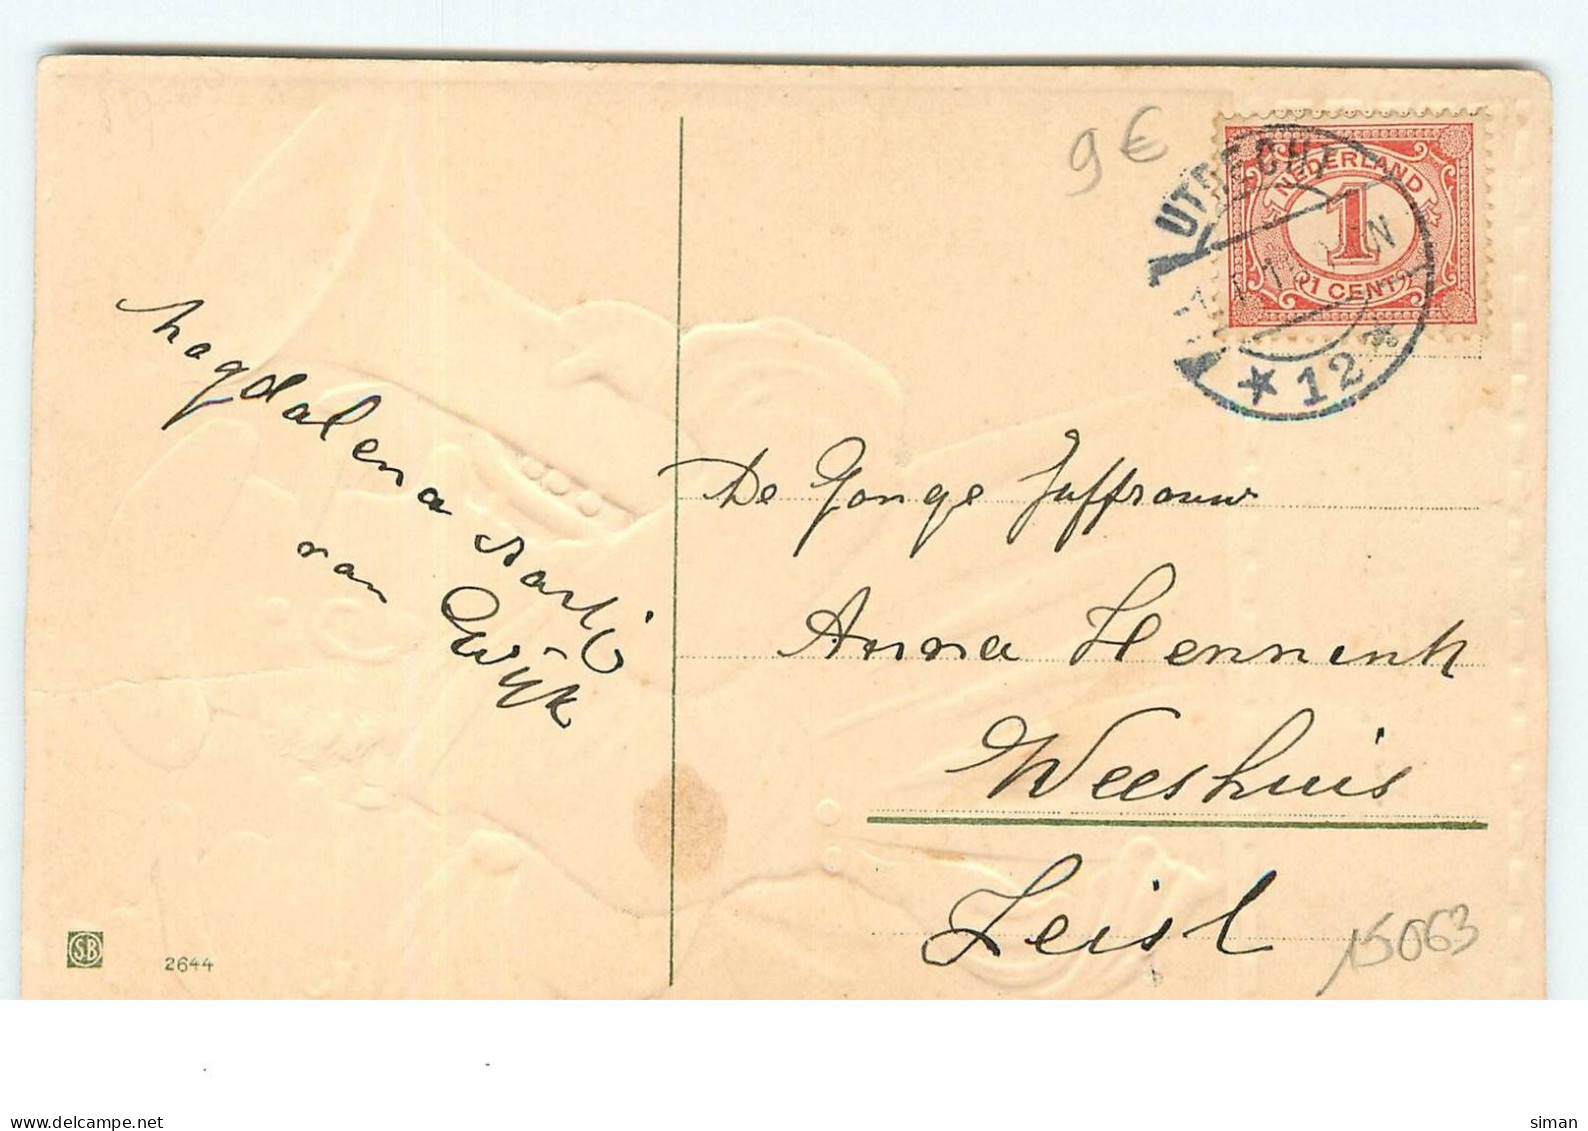 9 €
UTRECHT
NEDERLAND
1
1 CENT
12
Magdalena
van Wijk
De Jonge Juffrouw
Anna Hennink
Weeshuis
Zeist
SB
2644
15063
delcampe.net
siman